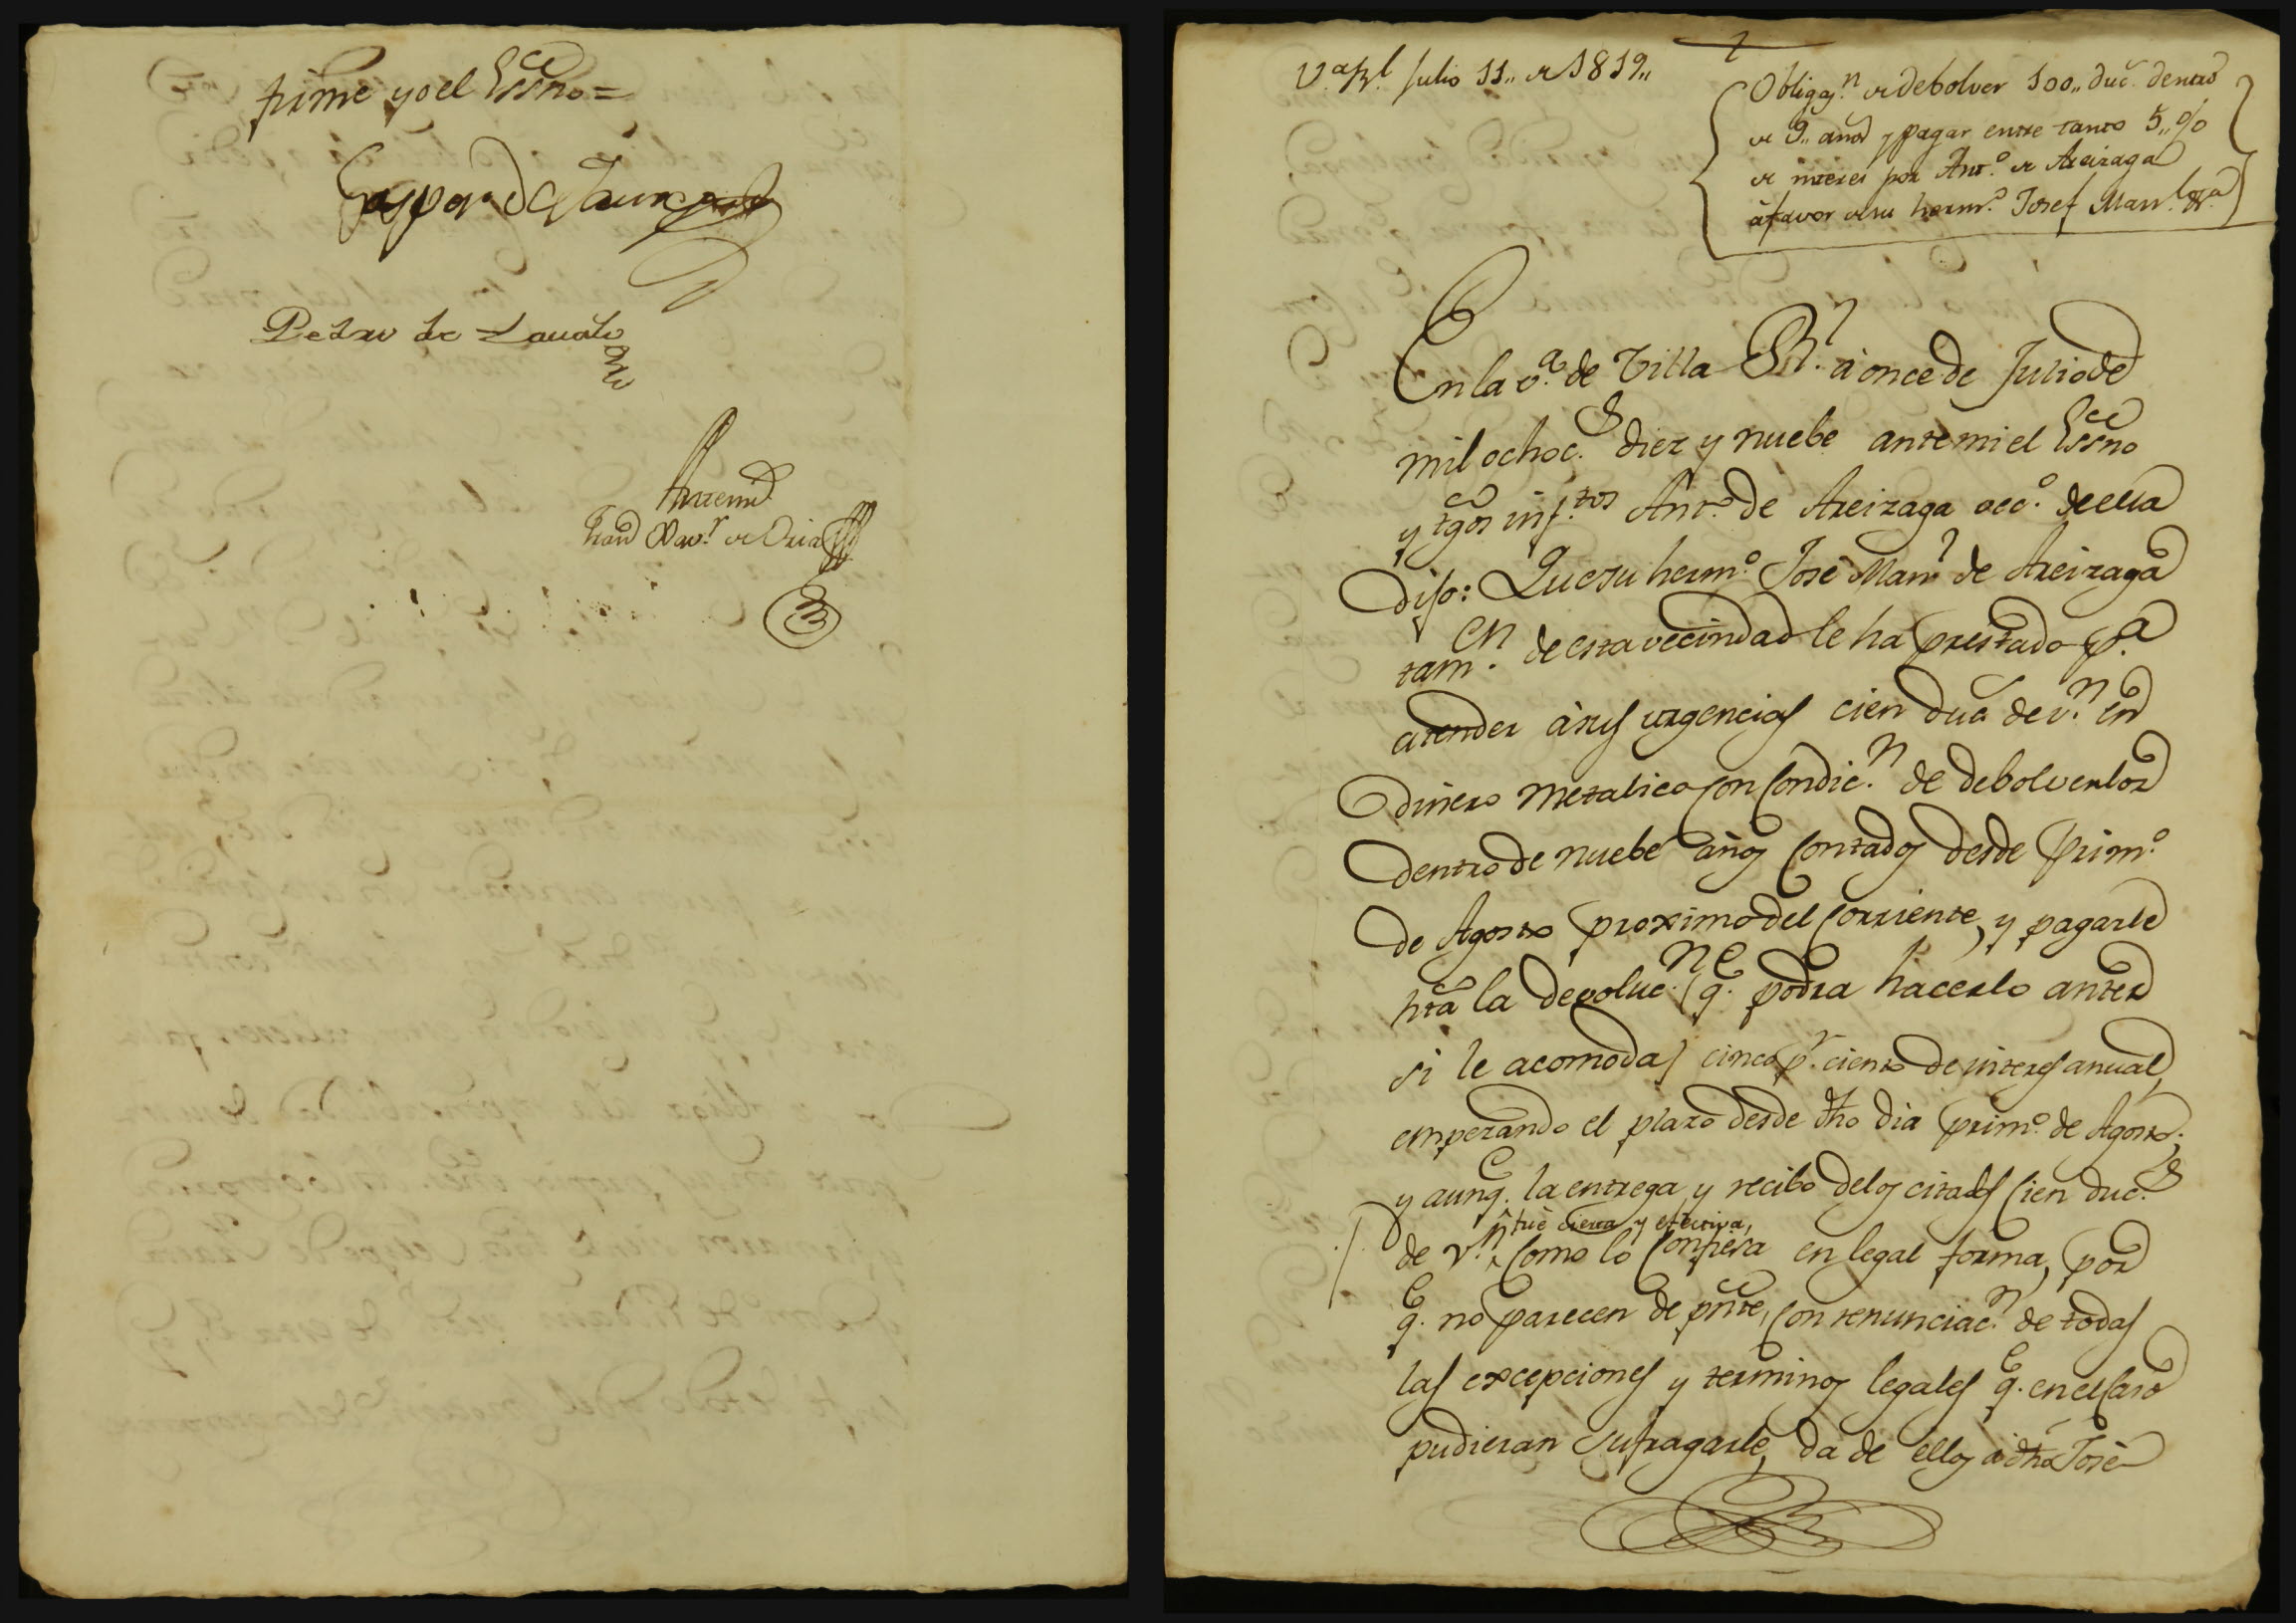 firme yo el Essno =
Gaspar de
Pedro de
Antemi
Fran.co Xav.r de Oria
V.a R.l Julio 11,, de 1819,,
Obligaz.n de debolver 100,, duc.s dentro
de 9,, años y pagar entre tanto 5,, %
de interes por Ant.o de Areizaga
à favor de su herm.o Josef Man.l &.a
En la v.a de Villa R.l à once de Julio de
mil ochoc.s diez y nuebe ante mi el Essno
y tgos inf.tos Ant.o de Areizaga vec.o de ella
Dijo: Que su herm.o José Man.l de Areizaga
tam.en de esta vecindad le ha prestado p.a
atender à sus urgencias cien duc.s de v.n en
dinero metalico con condic.n de debolverlos
dentro de nuebe años contados desde prim.o
de Agosto proximo del corriente, y pagarle
hta la devoluc.n (q.e podra hacerlo antes
si le acomoda) cinco p.r ciento de interes anual,
empezando el plazo desde dho dia prim.o de Agosto;
y aunq.e la entrega y recibo de los citados cien duc.s
fué cierta y efectiva,
de v.n como lo confiesa en legal forma, por
q.e no parecen de pnte, con renunciac.n de todas
las excepciones y terminos legales q.e en el caso
pudieran sufragarle, da de ellos à dho José